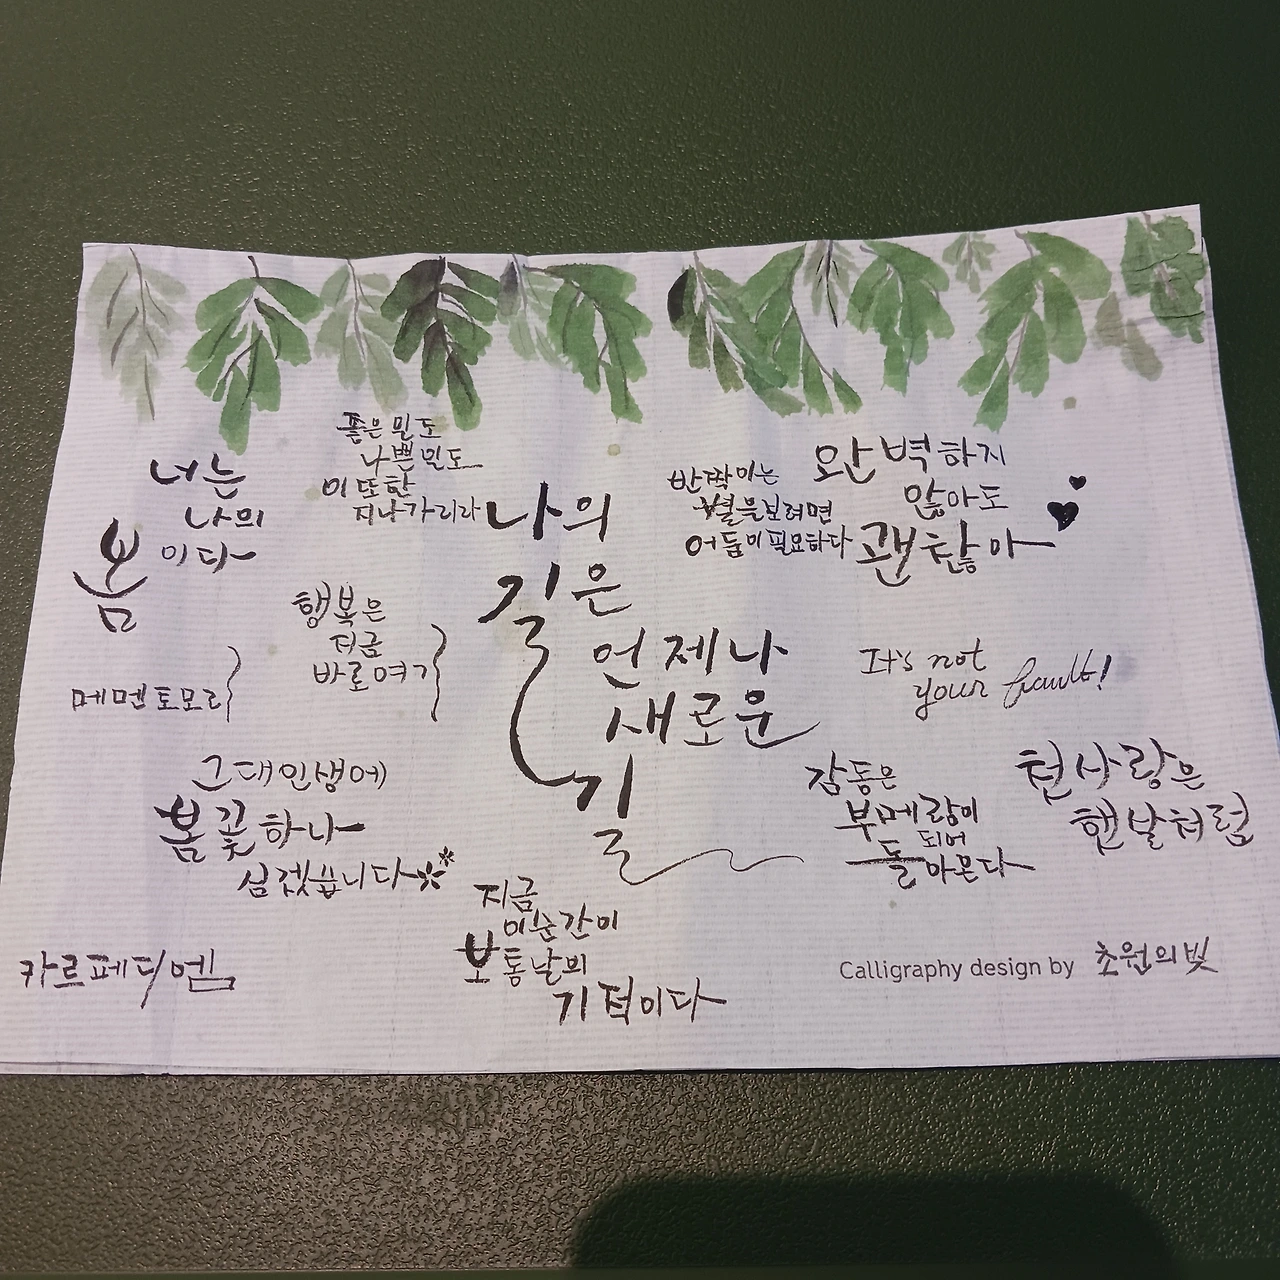 좋은 일도
나쁜 일도
이 또한
지나가리라
너는
나의
봄이다
나의
길은
언제나
새로운
길
반짝이는
별을 보려면
어둠이 필요하다
완벽하지
않아도
괜찮아
행복은
지금
바로 여기
메멘토모리
It's not
your fault!
그대 인생에
봄꽃 하나
심겠습니다
감동은
부메랑이
되어
돌아온다
첫사랑은
햇살처럼
지금
이 순간이
보통날의
기적이다
카르페디엠
Calligraphy design by 초원의빛